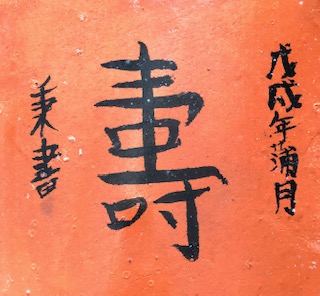 戊戌年蒲月
壽
秉書